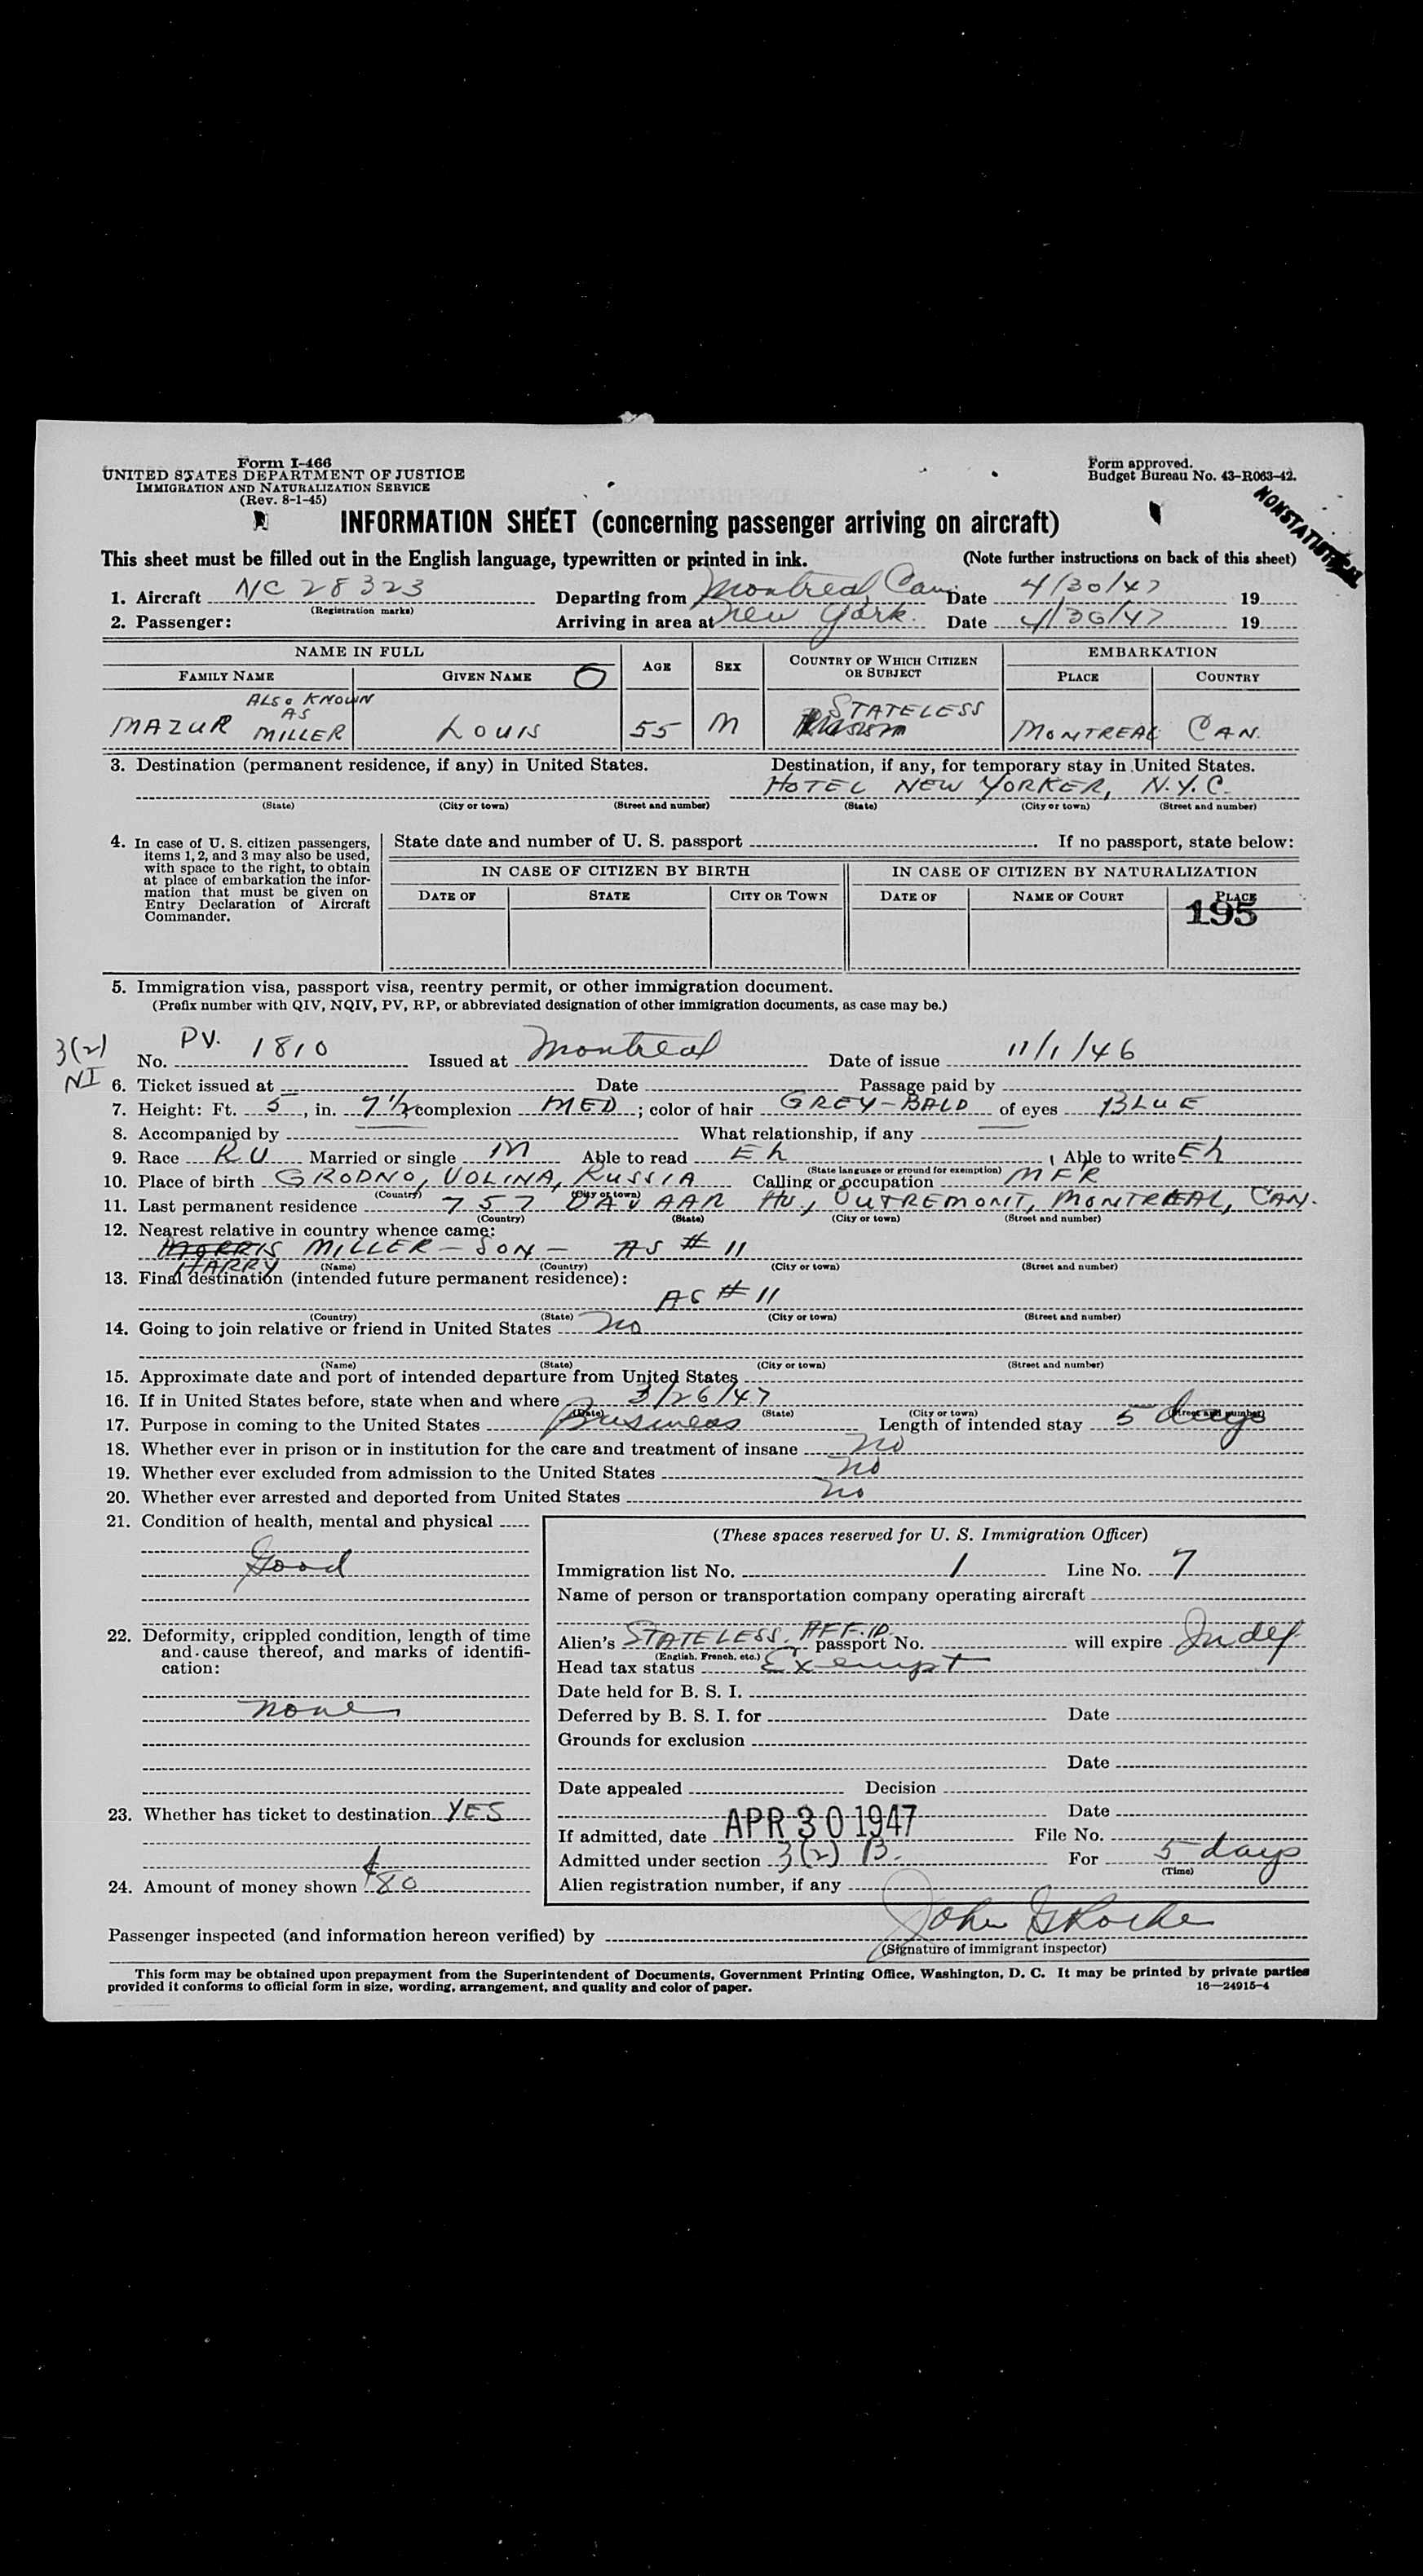 Form I-466
UNITED STATES DEPARTMENT OF JUSTICE
IMMIGRATION AND NATURALIZATION SERVICE
(Rev. 8-1-45)
Form approved.
Budget Bureau No. 43-R063-42.
NONSTATISTICAL
INFORMATION SHEET (concerning passenger arriving on aircraft)
This sheet must be filled out in the English language, typewritten or printed in ink. (Note further instructions on back of this sheet)
1. Aircraft NC 28323 Departing from Montreal, Can. Date 4/30/47 19
(Registration marks)
2. Passenger: Arriving in area at New York. Date 4/30/47 19
NAME IN FULL AGE SEX COUNTRY OF WHICH CITIZEN OR SUBJECT EMBARKATION
FAMILY NAME GIVEN NAME PLACE COUNTRY
ALSO KNOWN
AS STATELESS
MAZUR MILLER LOUIS 55 M MONTREAL CAN.
3. Destination (permanent residence, if any) in United States. Destination, if any, for temporary stay in United States.
HOTEL NEW YORKER, N.Y.C.
(State) (City or town) (Street and number) (State) (City or town) (Street and number)
4. In case of U. S. citizen passengers, items 1, 2, and 3 may also be used, with space to the right, to obtain at place of embarkation the information that must be given on Entry Declaration of Aircraft Commander.
State date and number of U. S. passport If no passport, state below:
IN CASE OF CITIZEN BY BIRTH IN CASE OF CITIZEN BY NATURALIZATION
DATE OF STATE CITY OR TOWN DATE OF NAME OF COURT PLACE
195
5. Immigration visa, passport visa, reentry permit, or other immigration document.
(Prefix number with QIV, NQIV, PV, RP, or abbreviated designation of other immigration documents, as case may be.)
3(2)
NI
No. PV. 1810 Issued at Montreal Date of issue 11/1/46
6. Ticket issued at Date Passage paid by
7. Height: Ft. 5, in. 7 1/2 complexion MED; color of hair GREY-BALD of eyes BLUE
8. Accompanied by What relationship, if any
9. Race RU Married or single M Able to read Eh, Able to write Eh
(State language or ground for exemption)
10. Place of birth GRODNO, VOLINA, RUSSIA Calling or occupation MFR
(Country) (City or town)
11. Last permanent residence 757 AV, OUTREMONT, MONTREAL, CAN.
(Country) (State) (City or town) (Street and number)
12. Nearest relative in country whence came:
MORRIS MILLER - SON - AS # 11
HARRY
(Name) (Country) (City or town) (Street and number)
13. Final destination (intended future permanent residence):
AS # 11
(Country) (State) (City or town) (Street and number)
14. Going to join relative or friend in United States No
(Name) (State) (City or town) (Street and number)
15. Approximate date and port of intended departure from United States
16. If in United States before, state when and where 3/26/47
(Date) (State) (City or town) (Street and number)
17. Purpose in coming to the United States Business Length of intended stay 5 days
18. Whether ever in prison or in institution for the care and treatment of insane No
19. Whether ever excluded from admission to the United States No
20. Whether ever arrested and deported from United States No
21. Condition of health, mental and physical
Good
22. Deformity, crippled condition, length of time and cause thereof, and marks of identification:
none
23. Whether has ticket to destination YES
24. Amount of money shown $80
(These spaces reserved for U. S. Immigration Officer)
Immigration list No. 1 Line No. 7
Name of person or transportation company operating aircraft
Alien's STATELESS. AFF. ID. passport No. will expire Indef
(English, French, etc.)
Head tax status Exempt
Date held for B. S. I.
Deferred by B. S. I. for Date
Grounds for exclusion
Date
Date appealed Decision
Date
If admitted, date APR 30 1947 File No.
Admitted under section 3(2) B. For 5 days
(Time)
Alien registration number, if any
Passenger inspected (and information hereon verified) by John G Roche
(Signature of immigrant inspector)
This form may be obtained upon prepayment from the Superintendent of Documents, Government Printing Office, Washington, D. C. It may be printed by private parties
provided it conforms to official form in size, wording, arrangement, and quality and color of paper. 16—24915-4